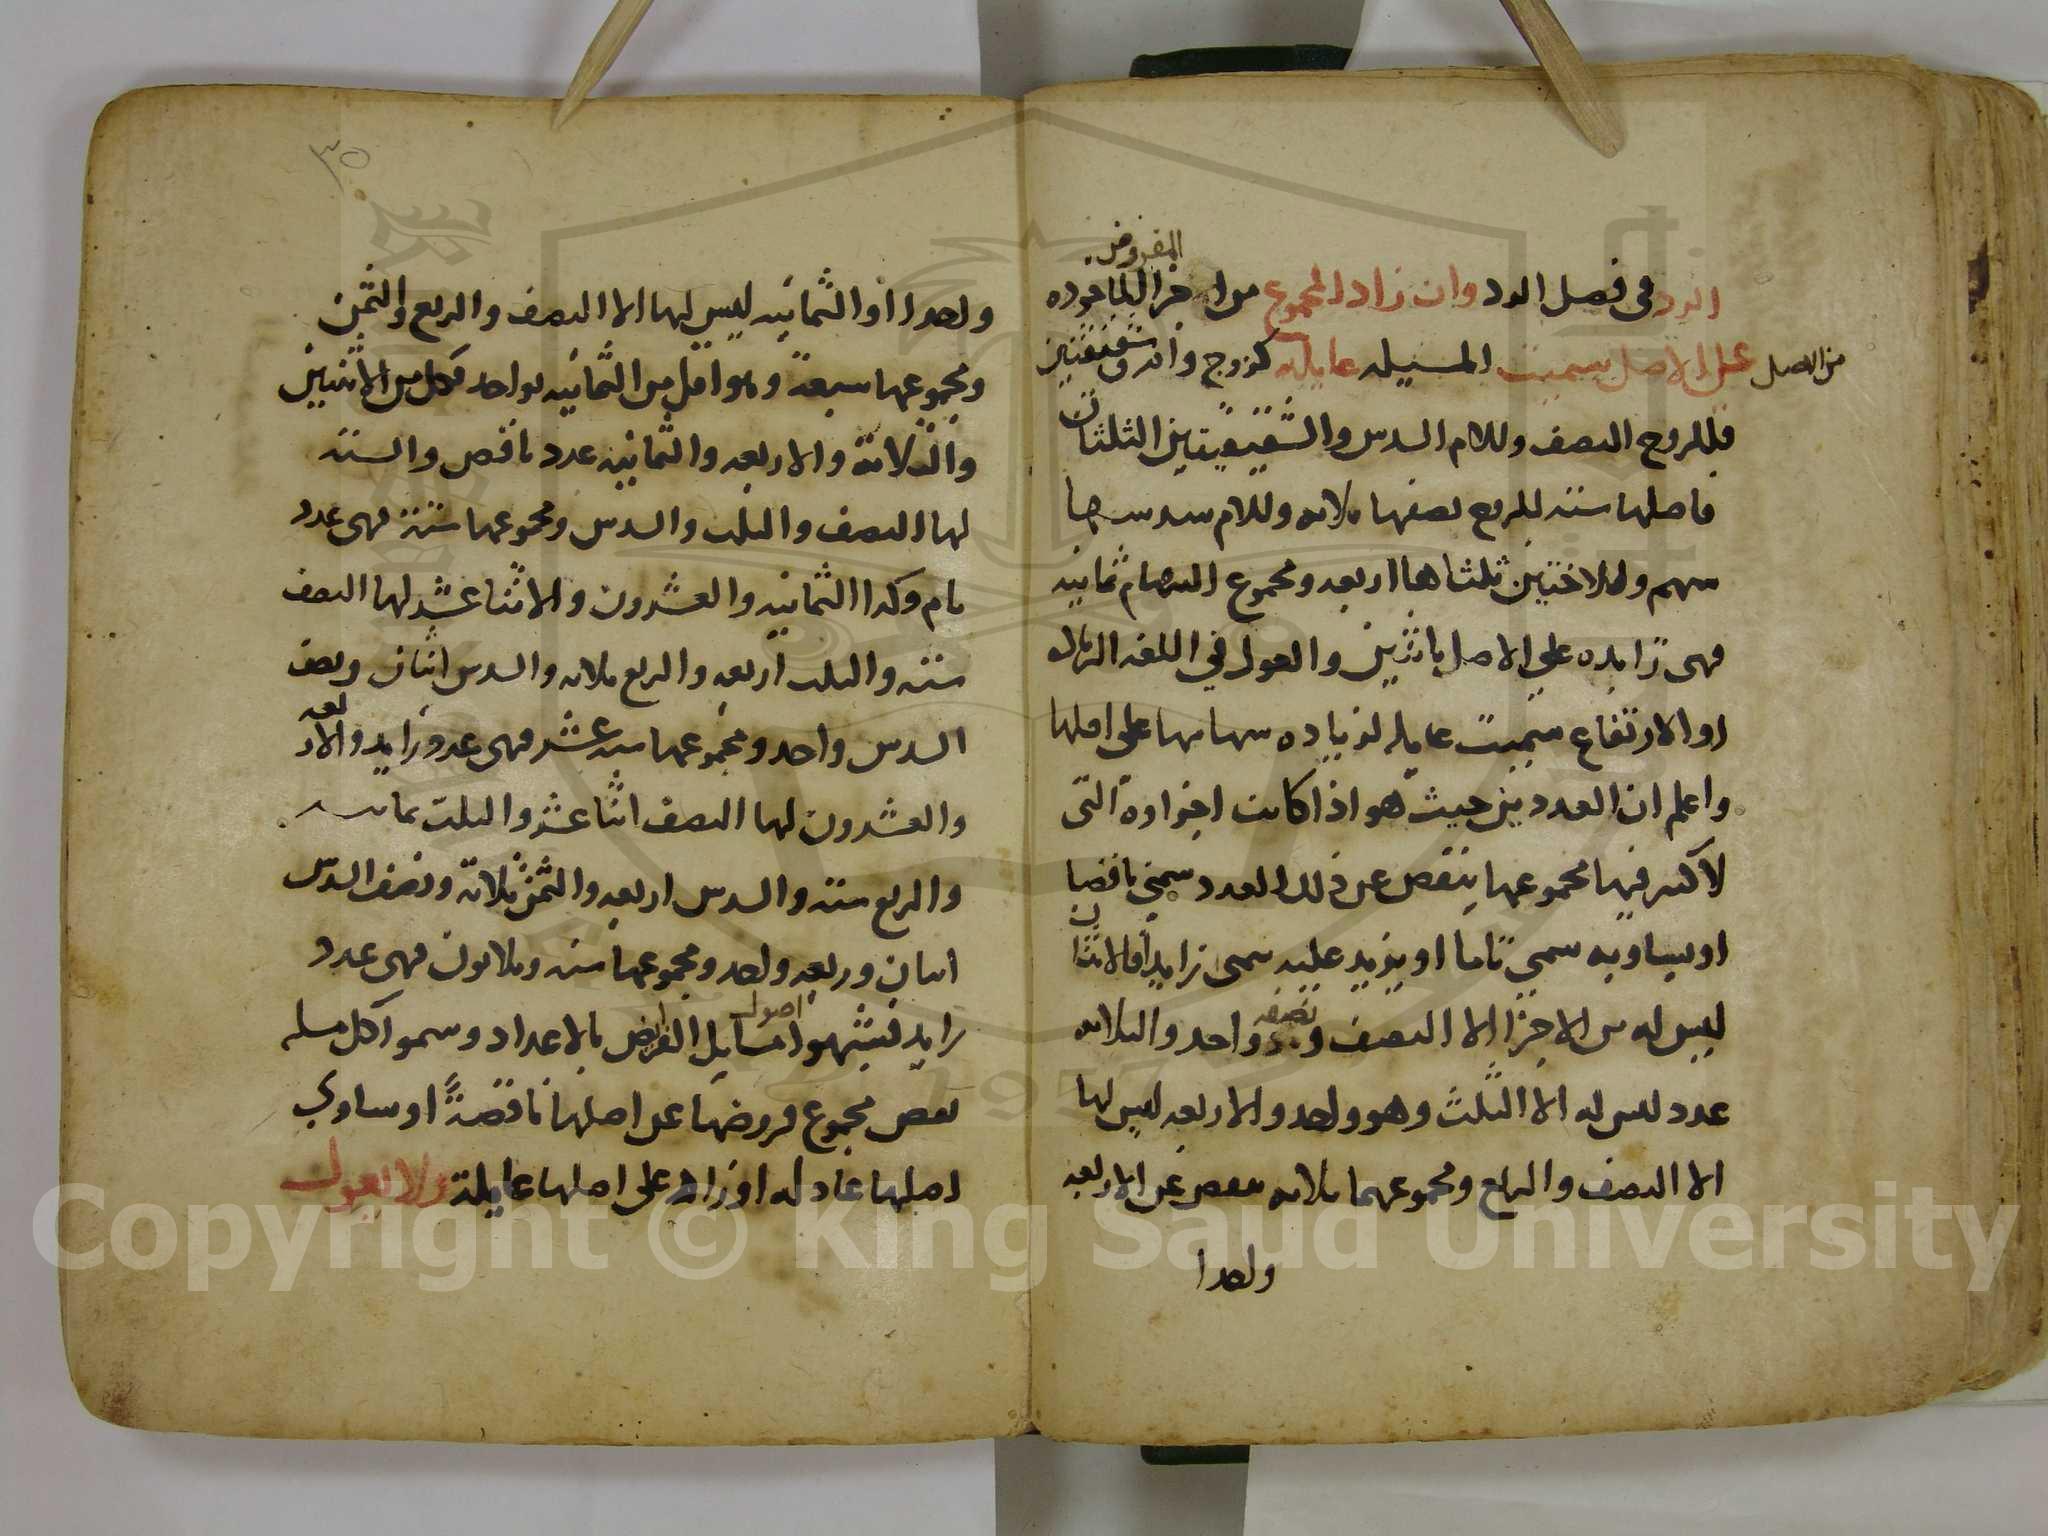 المفروض
الرد في فصل الرد وان زاد المجموع من الاجزا الماخوذه
من الاصل
على الاصل سميت المسيله عايله كزوج وام وشقيقتين
فللزوج النصف وللام السدس والشقيقتين الثلثان
فاصلها ستة للزوج نصفها ثلاثه وللام سدسها
سهم وللاختين ثلثاها اربعه ومجموع السهام ثمانيه
فهى زايده على الاصل باثنين والعول في اللغه الزياده
او الارتفاع سميت عايله لزياده سهامها على اصلها
واعلم ان العدد من حيث هو اذا كانت اجزاوه التى
لا كسر فيها مجموعها ينقص عن ذلك العدد سمي ناقصا
او يساويه سمي تاما او يزيد عليه سمى زايدا فالاثنان
ليس له من الاجزا الا النصف ونصفه واحد والثلاثه
عدد ليس له الا الثلث وهو واحد والاربعه ليس لها
الا النصف والربع ومجموعهما ثلاثه تنقص عن الاربعه
واحدا
٣٥
واحدا او الثمانيه ليس لها الا النصف والربع والثمن
ومجموعها سبعة وهو اقل من الثمانيه بواحد فكل من الاثنين
والثلاثة والاربعه والثمانيه عدد ناقص والستة
لها النصف والثلث والسدس ومجموعها ستة فهى عدد
تام وكذا الثمانيه والعشرون والاثنا عشر لها النصف
ستة والثلث اربعه والربع ثلاثه والسدس اثنان ونصف
السدس واحد ومجموعها ستة عشر فهى عدد زايد والاربعه
والعشرون لها النصف اثنا عشر والثلث ثمانيه
والربع ستة والسدس اربعه والثمن ثلاثة ونصف السدس
اثنان وربعه واحد ومجموعها ستة وثلاثون فهى عدد
زايد فشبهوا اصول مسايل الفرايض بالاعداد وسموا كل مسله
نقص مجموع فروضها عن اصلها ناقصةً او ساوي
اصلها عادله او زاد على اصلها عايلة ولا يعول
Copyright © King Saud University
1957